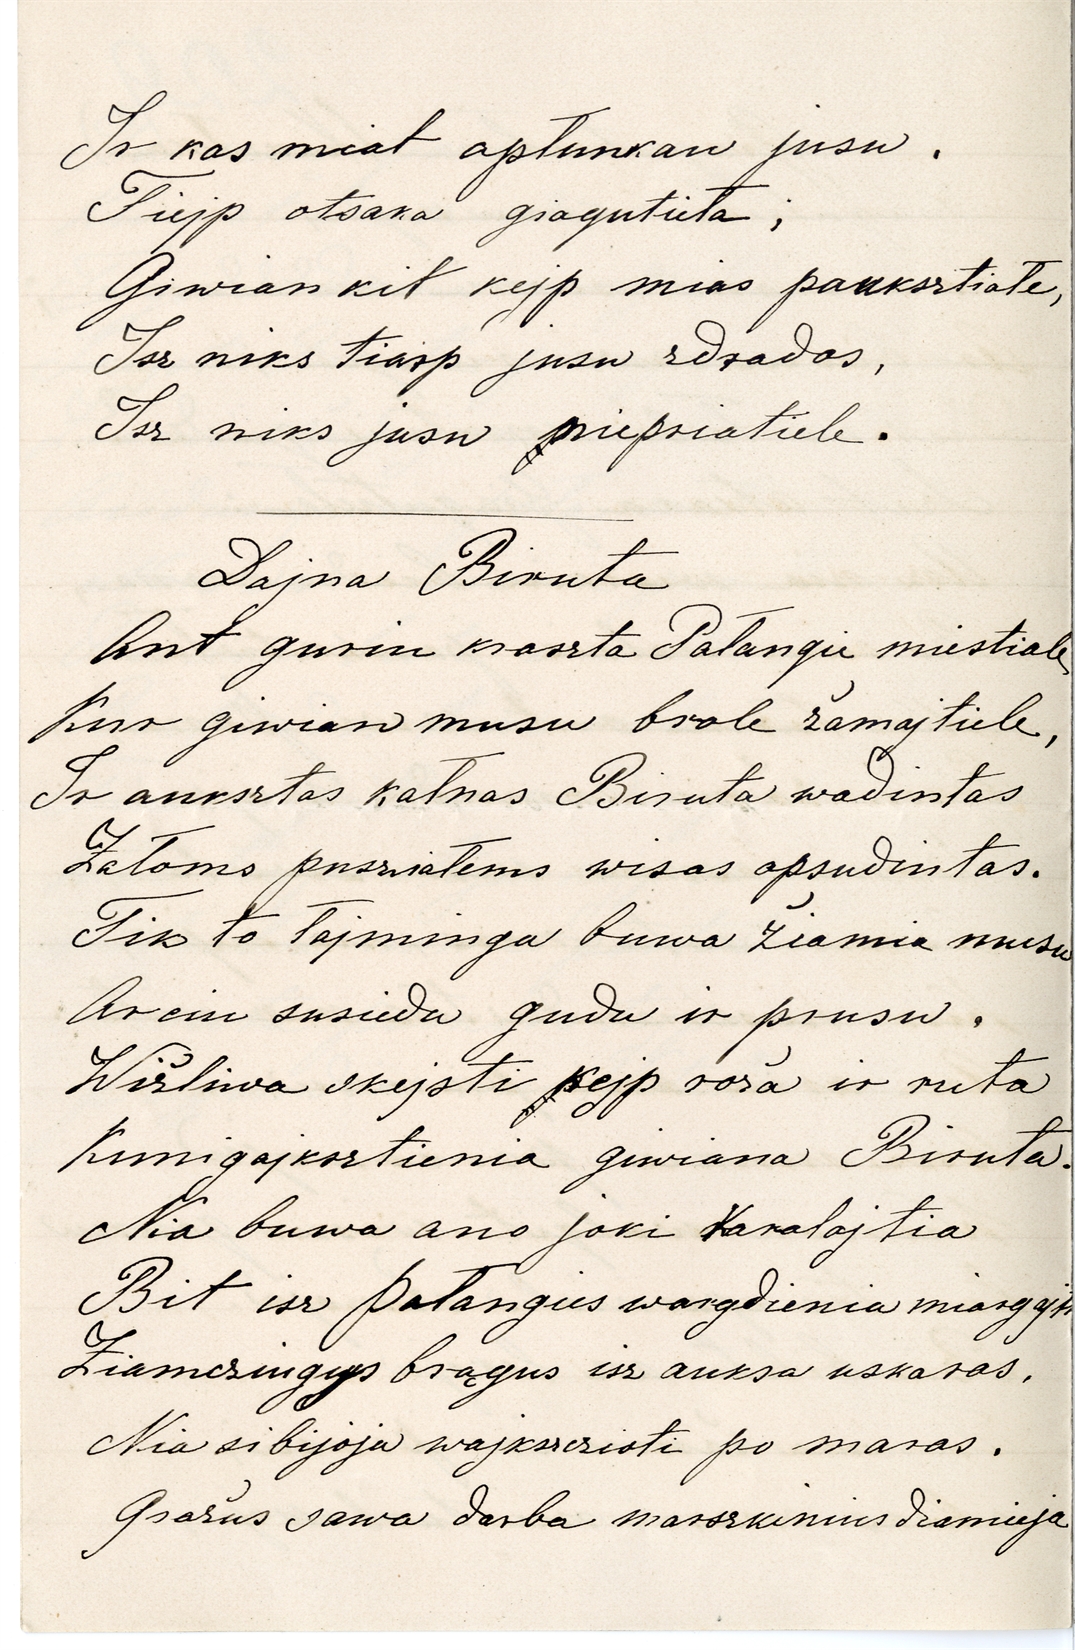 Ir kas miat aplunkau jusu.
Tiejp otsaka giagutieła;
Giwian kit kejp mias pauksztiałe,
Isz niks tiarp jusu zdrados,
Isz niks jusu priepriatiele.
Dajna Biruta
Ant guriu kraszta Pałangie miestiale,
Kur giwian musu brole žamajtiele,
Ir auksztas kałnas Biruta wadintas
Žałoms puszialems wisas apsudintas.
Tik to łajminga buwa žiamia musu
Arciu susiedu gudu ir prusu.
Wižliwa skejsti kejp roža ir ruta
Kunigajksztienia giwiana Biruta.
Nia buwa ano joki Karalajtia
Bit isz Pałangies wargdienia miargajti
Žiamcziugys brągus isz auksa uskaras,
Nia sibijoja wajkszczioti po maras.
Gražus sawa darba marszkinius diamieja